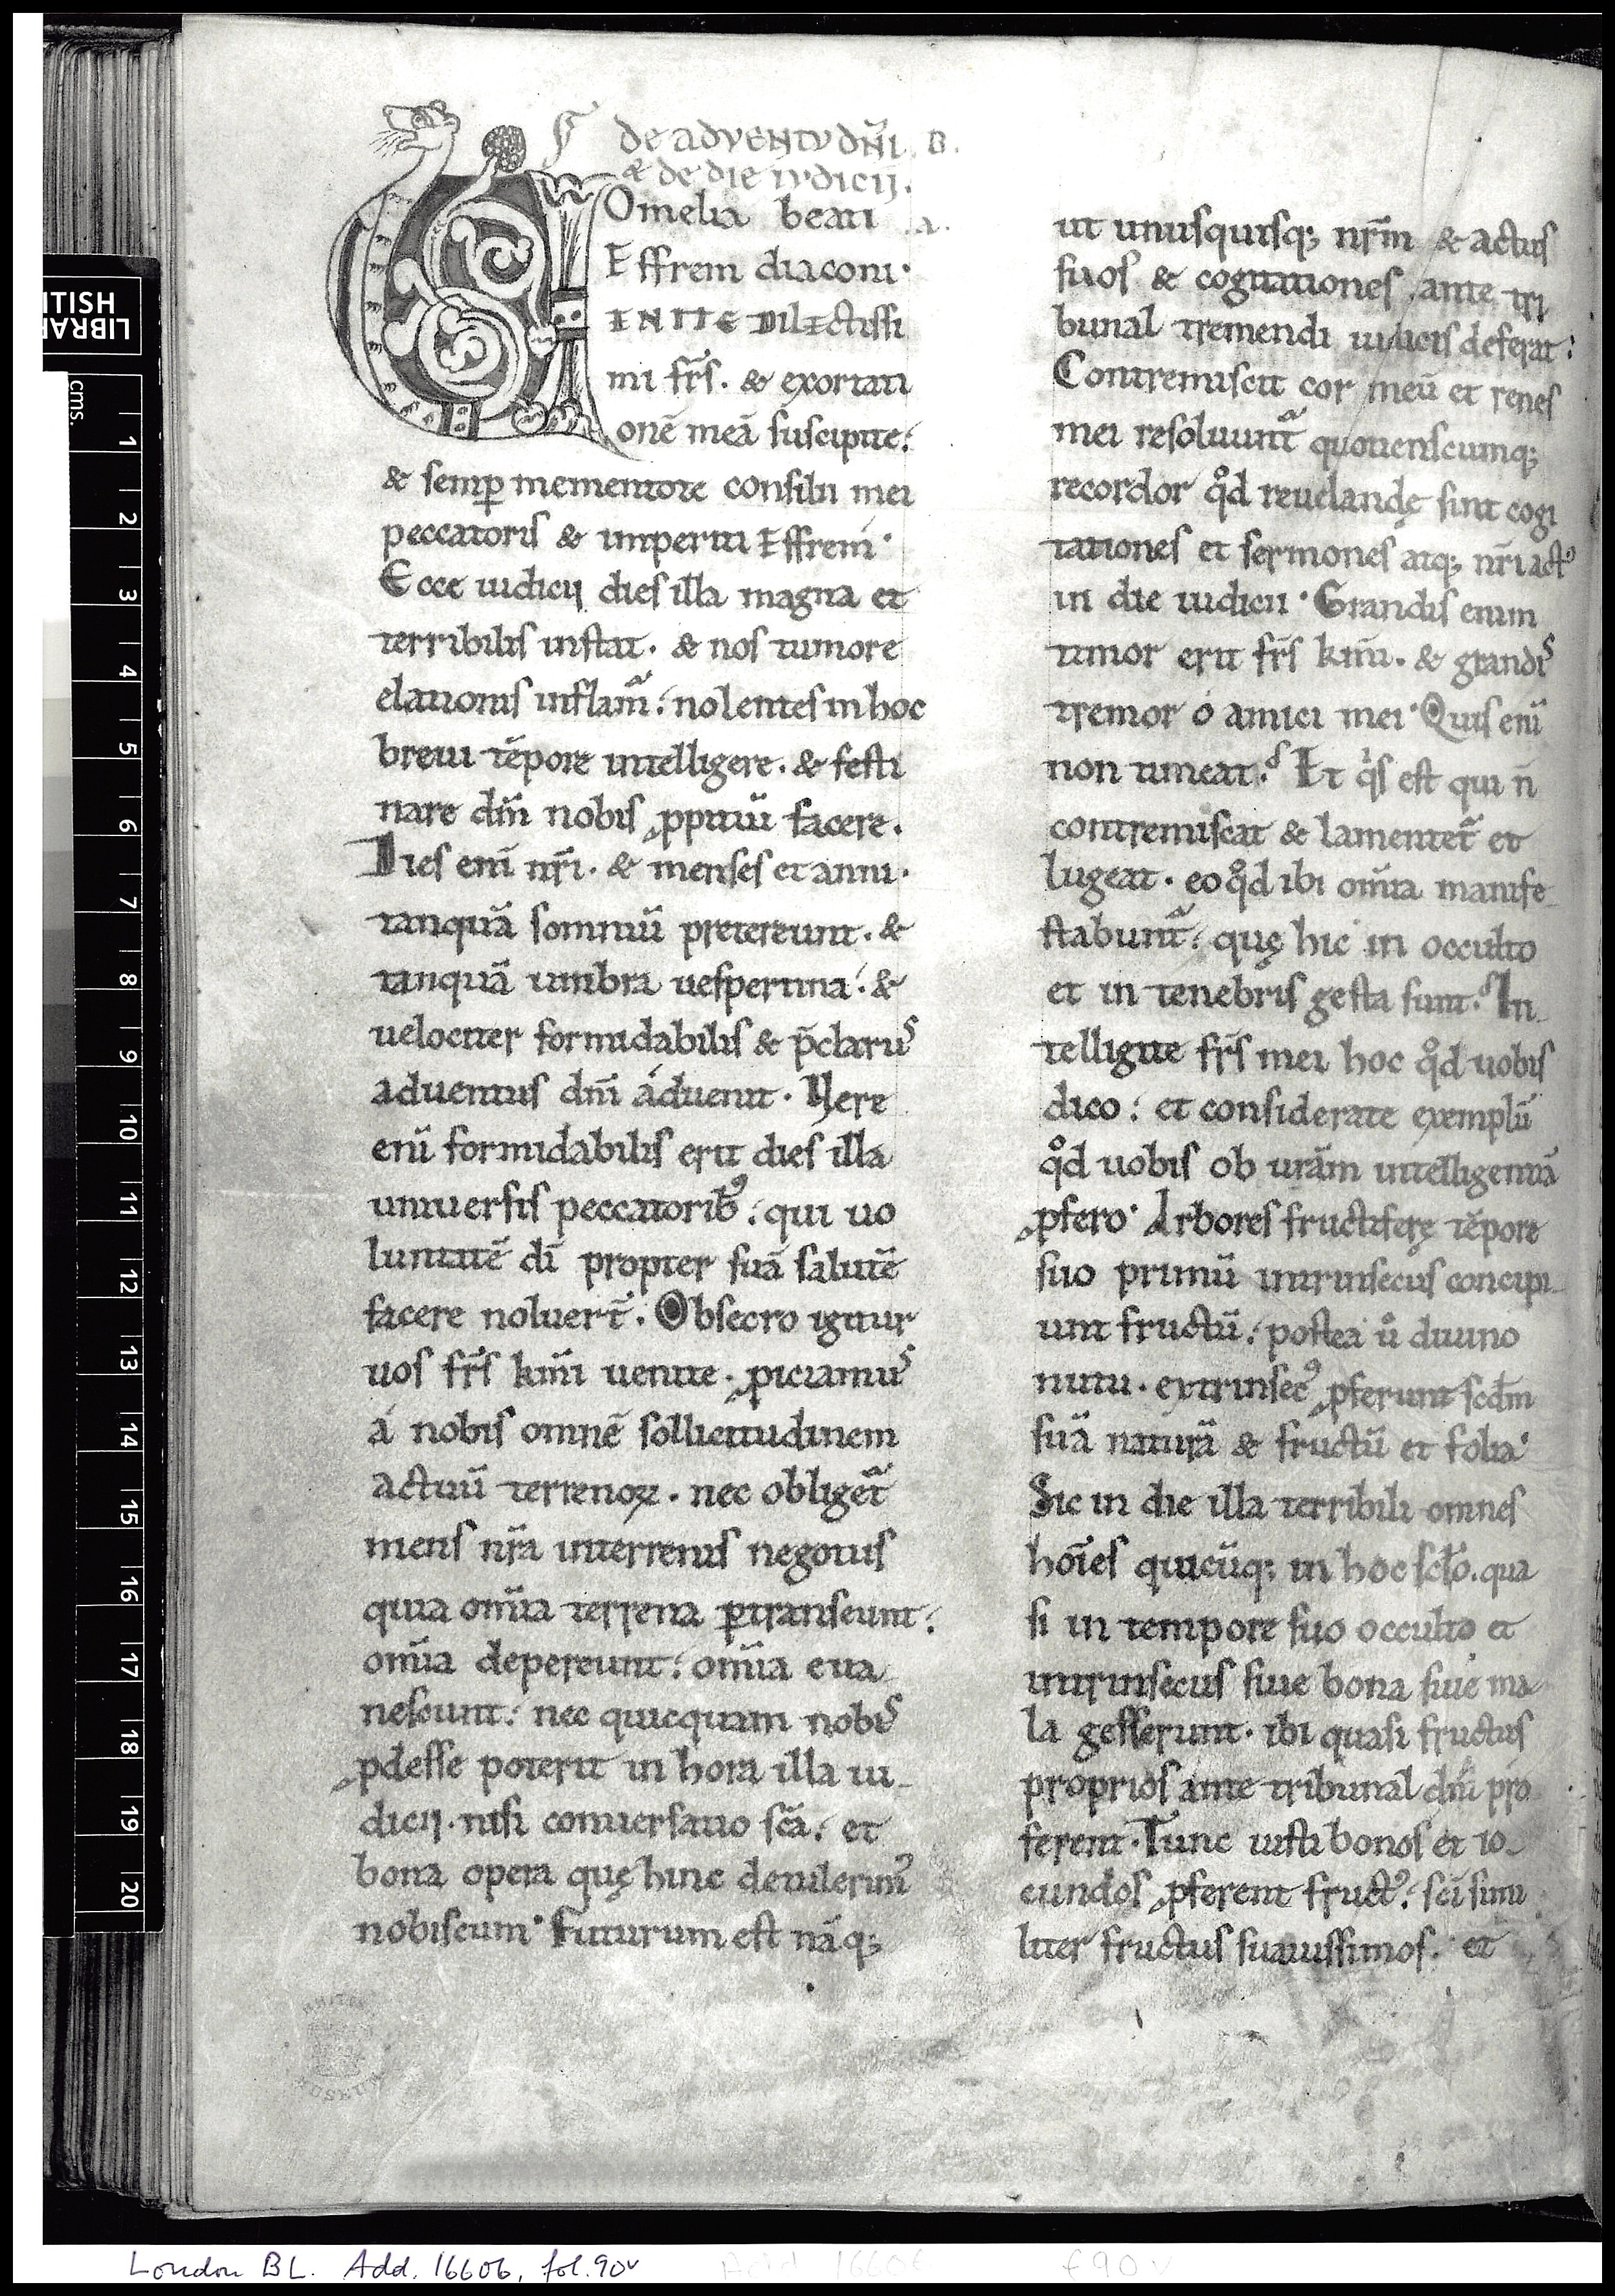 de adventv dn̄i. B.
& de die ivdicij.
Omelia beati .a.
Effrem diaconi·
ENITE Dilectissi
mi fr̄s. & exortati
onē meā suscipite:
& semꝑ mementote consilii mei
peccatoris & imperiti Effrem·
Ecce iudicij dies illa magna et
terribilis instat. & nos tumore
elationis inflam̄: nolentes in hoc
breui tēpore intelligere. & festi
nare dm̄ nobis ꝓpitiū facere.
Dies enī nr̄i. & menses et anni.
tanquā somniū pretereunt. &
tanquā umbra uespertina: &
uelociter formidabilis & p̄clarus
aduentus dn̄i áduenit. Vere
enī formidabilis erit dies illa
uniuersis peccatorib᷒: qui uo
luntatē dī propter suā salutē
facere noluert̄. Obsecro igitur
uos fr̄s km̄i uenite. ꝓiciamus
á nobis omnē sollicitudinem
actuū terrenoꝝ. nec obliget᷑
mens nr̄a interrenis negotiis
quia om̄ia terrena ꝑtranseunt:
om̄ia depereunt: om̄ia eua
nescunt: nec quicquam nobis
ꝓdesse poterit in hora illa iu-
dicij. nisi conuersatio sc̄a: et
bona opera quę hinc detulerim᷒
nobiscum· Futurum est nāq;
ut unusquisq; nr̄m & actus
suos & cogitationes ante tri
bunal tremendi iudicis deferat:
Contremiscit cor meū et renes
mei resoluunt᷑ quotienscumq;
recordor qd̊ reuelandę sint cogi
tationes et sermones atq; nr̄i act᷒
in die iudicii· Grandis enim
timor erit fr̄s km̄i. & grandis
tremor ó amici mei· Quis enī
non timeat? Et q̇s est qui n̄
contremiscat & lamentet᷑ et
lugeat. eo qd̊ ibi om̄ia manife-
stabunt᷑: quę hic in occulto
et in tenebris gesta sunt? In-
telligite fr̄s mei hoc qd̊ uobis
dico: et considerate exemplū
qd̊ uobis ob urā̄m intelligentiā
ꝓfero· Arbores fructiferę tēpore
suo primū intrinsecus concipi-
unt fructū: postea ů diuino
nutu. extrinsec᷒ ꝓferunt scdm̄
suā naturā & fructū et folia·
Sic in die illa terribili omnes
hoīes quicūq; in hoc scl̄o. qua
si in tempore suo occulto et
intrinsecus siue bona siue ma
la gesserunt. ibi quasi fructus
proprios ante tribunal dn̄i pro
ferent. Tunc iusti bonos et io-
cundos ꝓferent fruct᷒: sc̄i simi
liter fructus suauissimos. et
BRITISH
LIBRARY
cms.
1
2
3
4
5
6
7
8
9
10
11
12
13
14
15
16
17
18
19
20
London BL. Add. 16606, fol. 90v
Add 16606 f 90 v